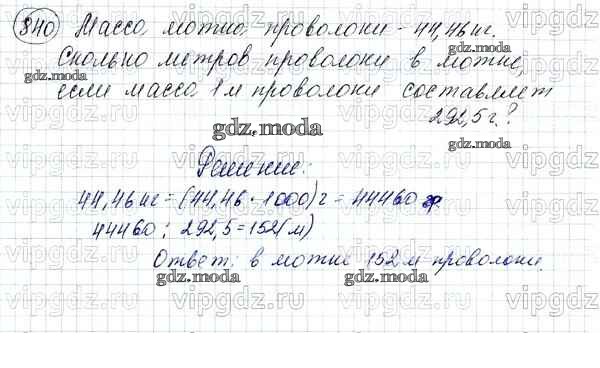 840 Масса мотка проволоки - 44,46 кг.
Сколько метров проволоки в мотке,
если масса 1 м проволоки составляет
292,5 г?
Решение:
44,46 кг = (44,46 · 1000) г = 44460 гр.
44460 : 292,5 = 152 (м)
Ответ: в мотке 152 м проволоки.
gdz.moda
vipgdz.ru